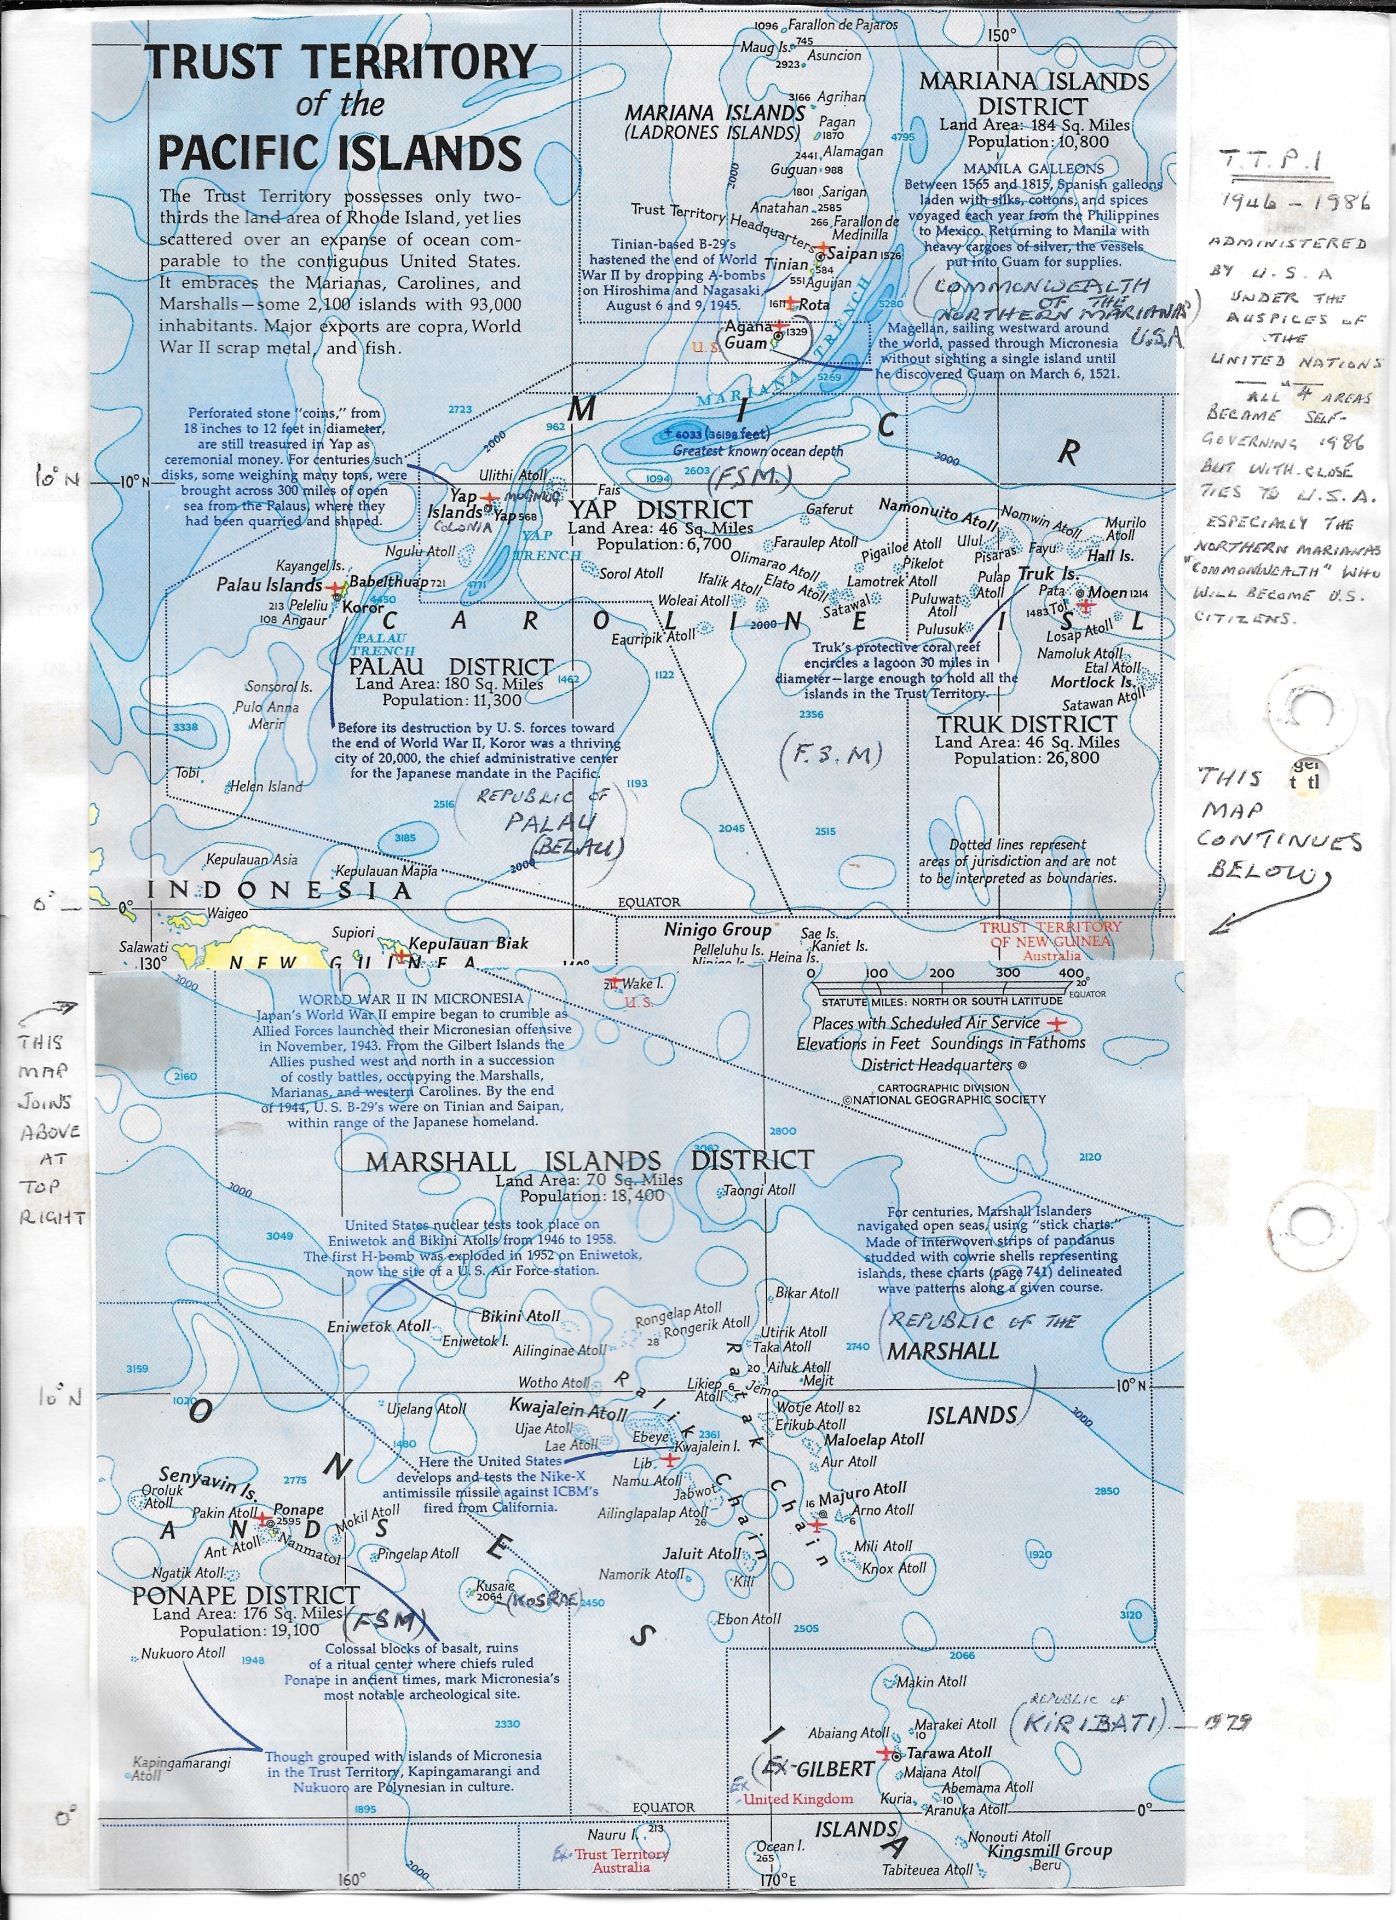 TRUST TERRITORY
of the
PACIFIC ISLANDS
The Trust Territory possesses only two-
thirds the land area of Rhode Island, yet lies
scattered over an expanse of ocean com-
parable to the contiguous United States.
It embraces the Marianas, Carolines, and
Marshalls—some 2,100 islands with 93,000
inhabitants. Major exports are copra, World
War II scrap metal, and fish.
1096 Farallon de Pajaros
Maug Is. 745
Asuncion
2923
3166 Agrihan
MARIANA ISLANDS
(LADRONES ISLANDS)
Pagan
1870
2441 Alamagan
Guguan 988
1801 Sarigan
Anatahan 2585
Trust Territory Headquarters
266 Farallon de
Medinilla
Saipan 1526
Tinian
584
551 Aguijan
1611 Rota
Agana
1329
Guam
U.S.
2000
4795
150°
MARIANA ISLANDS
DISTRICT
Land Area: 184 Sq. Miles
Population: 10,800
MANILA GALLEONS
Between 1565 and 1815, Spanish galleons
laden with silks, cottons, and spices
voyaged each year from the Philippines
to Mexico. Returning to Manila with
heavy cargoes of silver, the vessels
put into Guam for supplies.
(COMMONWEALTH
OF THE
NORTHERN MARIANAS)
U.S.A
Tinian-based B-29's
hastened the end of World
War II by dropping A-bombs
on Hiroshima and Nagasaki,
August 6 and 9, 1945.
5280
Magellan, sailing westward around
the world, passed through Micronesia
without sighting a single island until
he discovered Guam on March 6, 1521.
MARIANA TRENCH
5269
T.T.P.I
1946 – 1986
ADMINISTERED
BY U.S.A
UNDER THE
AUSPICES OF
THE
UNITED NATIONS
ALL 4 AREAS
BECAME SELF-
GOVERNING 1986
BUT WITH CLOSE
TIES TO U.S.A.
ESPECIALLY THE
NORTHERN MARIANAS
"COMMONWEALTH" WHO
WILL BECOME U.S.
CITIZENS.
Perforated stone "coins," from
18 inches to 12 feet in diameter,
are still treasured in Yap as
ceremonial money. For centuries such
disks, some weighing many tons, were
brought across 300 miles of open
sea from the Palaus, where they
had been quarried and shaped.
2723
2000
962
M I C R
6033 (36198 feet)
Greatest known ocean depth
2603
1094
3000
10° N
10° N
Ulithi Atoll
Fais
Yap
Islands
Yap 568
COLONIA
(FSM.)
YAP DISTRICT
Land Area: 46 Sq. Miles
Population: 6,700
YAP
TRENCH
4771
Ngulu Atoll
Sorol Atoll
Gaferut
Faraulep Atoll
Olimarao Atoll
Ifalik Atoll
Elato Atoll
Woleai Atoll
Eauripik Atoll
2000
Pigailoe Atoll
Pikelot
Lamotrek Atoll
Satawal
Namonuito Atoll
Ulul
Pisaras
Nomwin Atoll
Fayu
Murilo
Atoll
Hall Is.
Pulap
Atoll
Puluwat
Atoll
Pulusuk
Truk Is.
Pata
Moen 1214
1483 Tol
Losap Atoll
Namoluk Atoll
Etal Atoll
Mortlock Is.
Satawan Atoll
Kayangel Is.
Palau Islands
Babelthuap 721
4450
213 Peleliu
Koror
108 Angaur
PALAU
TRENCH
C A R O L I N E I S L
PALAU DISTRICT
Land Area: 180 Sq. Miles
Population: 11,300
1462
1122
Sonsorol Is.
Pulo Anna
Merir
3338
Tobi
Helen Island
Before its destruction by U.S. forces toward
the end of World War II, Koror was a thriving
city of 20,000, the chief administrative center
for the Japanese mandate in the Pacific.
(REPUBLIC OF
PALAU
(BELAU)
2516
3185
1193
2000
Truk's protective coral reef
encircles a lagoon 30 miles in
diameter—large enough to hold all the
islands in the Trust Territory.
2356
(F.S.M)
2045
2515
TRUK DISTRICT
Land Area: 46 Sq. Miles
Population: 26,800
Dotted lines represent
areas of jurisdiction and are not
to be interpreted as boundaries.
THIS
MAP
CONTINUES
BELOW
Kepulauan Asia
Kepulauan Mapia
INDONESIA
0°
0°
EQUATOR
Waigeo
Supiori
Salawati
Kepulauan Biak
130°
NEW GUINEA
Ninigo Group
Pelleluhu Is.
Heina Is.
Sae Is.
Kaniet Is.
TRUST TERRITORY
OF NEW GUINEA
Australia
3000
WORLD WAR II IN MICRONESIA
Japan's World War II empire began to crumble as
Allied Forces launched their Micronesian offensive
in November, 1943. From the Gilbert Islands the
Allies pushed west and north in a succession
of costly battles, occupying the Marshalls,
Marianas, and western Carolines. By the end
of 1944, U.S. B-29's were on Tinian and Saipan,
within range of the Japanese homeland.
21 Wake I.
U.S.
0 100 200 300 400
20°
EQUATOR
STATUTE MILES: NORTH OR SOUTH LATITUDE
Places with Scheduled Air Service
Elevations in Feet Soundings in Fathoms
District Headquarters
CARTOGRAPHIC DIVISION
©NATIONAL GEOGRAPHIC SOCIETY
THIS
MAP
JOINS
ABOVE
AT
TOP
RIGHT
2160
2800
2120
MARSHALL ISLANDS DISTRICT
Land Area: 70 Sq. Miles
Population: 18,400
Taongi Atoll
3000
3049
United States nuclear tests took place on
Eniwetok and Bikini Atolls from 1946 to 1958.
The first H-bomb was exploded in 1952 on Eniwetok,
now the site of a U.S. Air Force station.
For centuries, Marshall Islanders
navigated open seas, using "stick charts."
Made of interwoven strips of pandanus
studded with cowrie shells representing
islands, these charts (page 741) delineated
wave patterns along a given course.
(REPUBLIC OF THE
MARSHALL
ISLANDS)
Bikini Atoll
Eniwetok Atoll
Eniwetok I.
Ailinginae Atoll
Rongelap Atoll
Rongerik Atoll
28
Bikar Atoll
Utirik Atoll
Taka Atoll
2740
3159
20 Ailuk Atoll
Mejit
Wotho Atoll
Likiep
Atoll
6
Jemo
10° N
10° N
1020
Ujelang Atoll
Kwajalein Atoll
Ujae Atoll
Lae Atoll
Ebeye
2361
Kwajalein I.
Lib
Wotje Atoll 82
Erikub Atoll
Maloelap Atoll
Aur Atoll
3000
1480
Here the United States
develops and tests the Nike-X
antimissile missile against ICBM's
fired from California.
Namu Atoll
Jabwot
Ailinglapalap Atoll
26
16 Majuro Atoll
Arno Atoll
6
2850
Ralik Chain
Ratak Chain
O N E S I A
Senyavin Is.
2775
Oroluk
Atoll
Pakin Atoll
Ponape
2595
Mokil Atoll
A N D S
Ant Atoll
Nanmatol
Pingelap Atoll
Ngatik Atoll
Jaluit Atoll
Namorik Atoll
Kili
Mili Atoll
Knox Atoll
1920
Kusaie
2064
(KOSRAE)
2450
Ebon Atoll
2505
3120
PONAPE DISTRICT
Land Area: 176 Sq. Miles
Population: 19,100
(FSM)
Nukuoro Atoll
1948
Colossal blocks of basalt, ruins
of a ritual center where chiefs ruled
Ponape in ancient times, mark Micronesia's
most notable archeological site.
2330
2066
Makin Atoll
Abaiang Atoll
Marakei Atoll
10
REPUBLIC OF
(KIRIBATI) — 1979
Tarawa Atoll
Maiana Atoll
Abemama Atoll
Kuria
10
Aranuka Atoll
(EX-GILBERT
ISLANDS
EX
United Kingdom
Kapingamarangi
Atoll
Though grouped with islands of Micronesia
in the Trust Territory, Kapingamarangi and
Nukuoro are Polynesian in culture.
0°
1895
EQUATOR
0°
Nauru I. 213
EX-Trust Territory
Australia
Ocean I.
265
Nonouti Atoll
Kingsmill Group
Beru
Tabiteuea Atoll
160°
2000
170° E